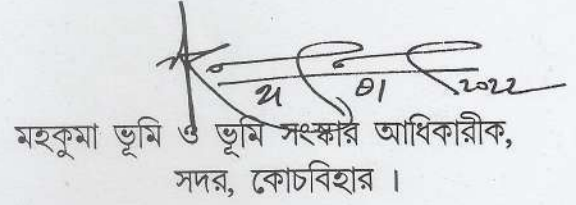 21 01 2022
মহকুমা ভূমি ও ভূমি সংস্কার আধিকারীক,
সদর, কোচবিহার ।